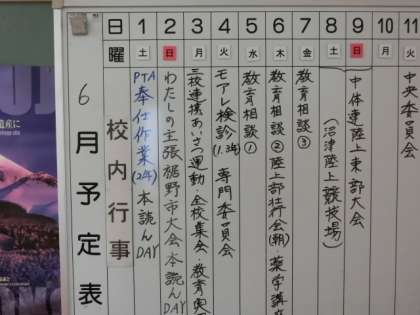 6月予定表
日 1 2 3 4 5 6 7 8 9 10 11
曜 土 日 月 火 水 木 金 土 日 月 火
校内行事
PTA奉仕作業(2年) 本読んDAY
わたしの主張裾野市大会 本読んDAY
三校連携あいさつ運動・全校集会・教育実
モアレ検診(1.2年) 専門委員会
教育相談①
教育相談② 陸上部壮行会(朝) 薬学講座
教育相談③
中体連陸上東部大会
(沼津陸上競技場)
中央委員会
遺産に